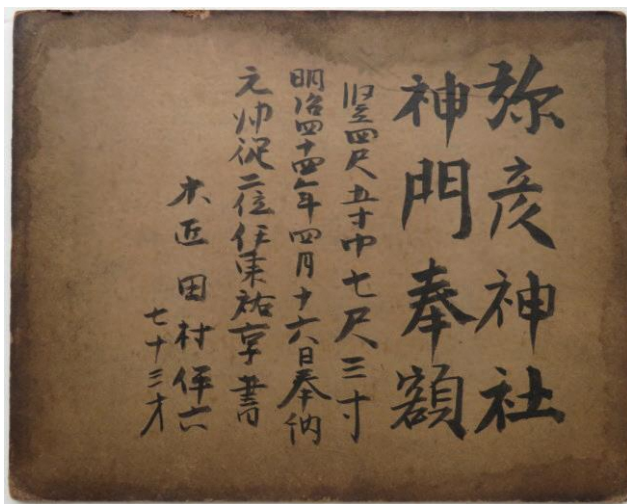 弥彦神社
神門奉額
竪四尺五寸巾七尺三寸
明治四十四年四月十六日奉納
元帅従二位伊東祐亨書
木匠 田村伊六
七十三才